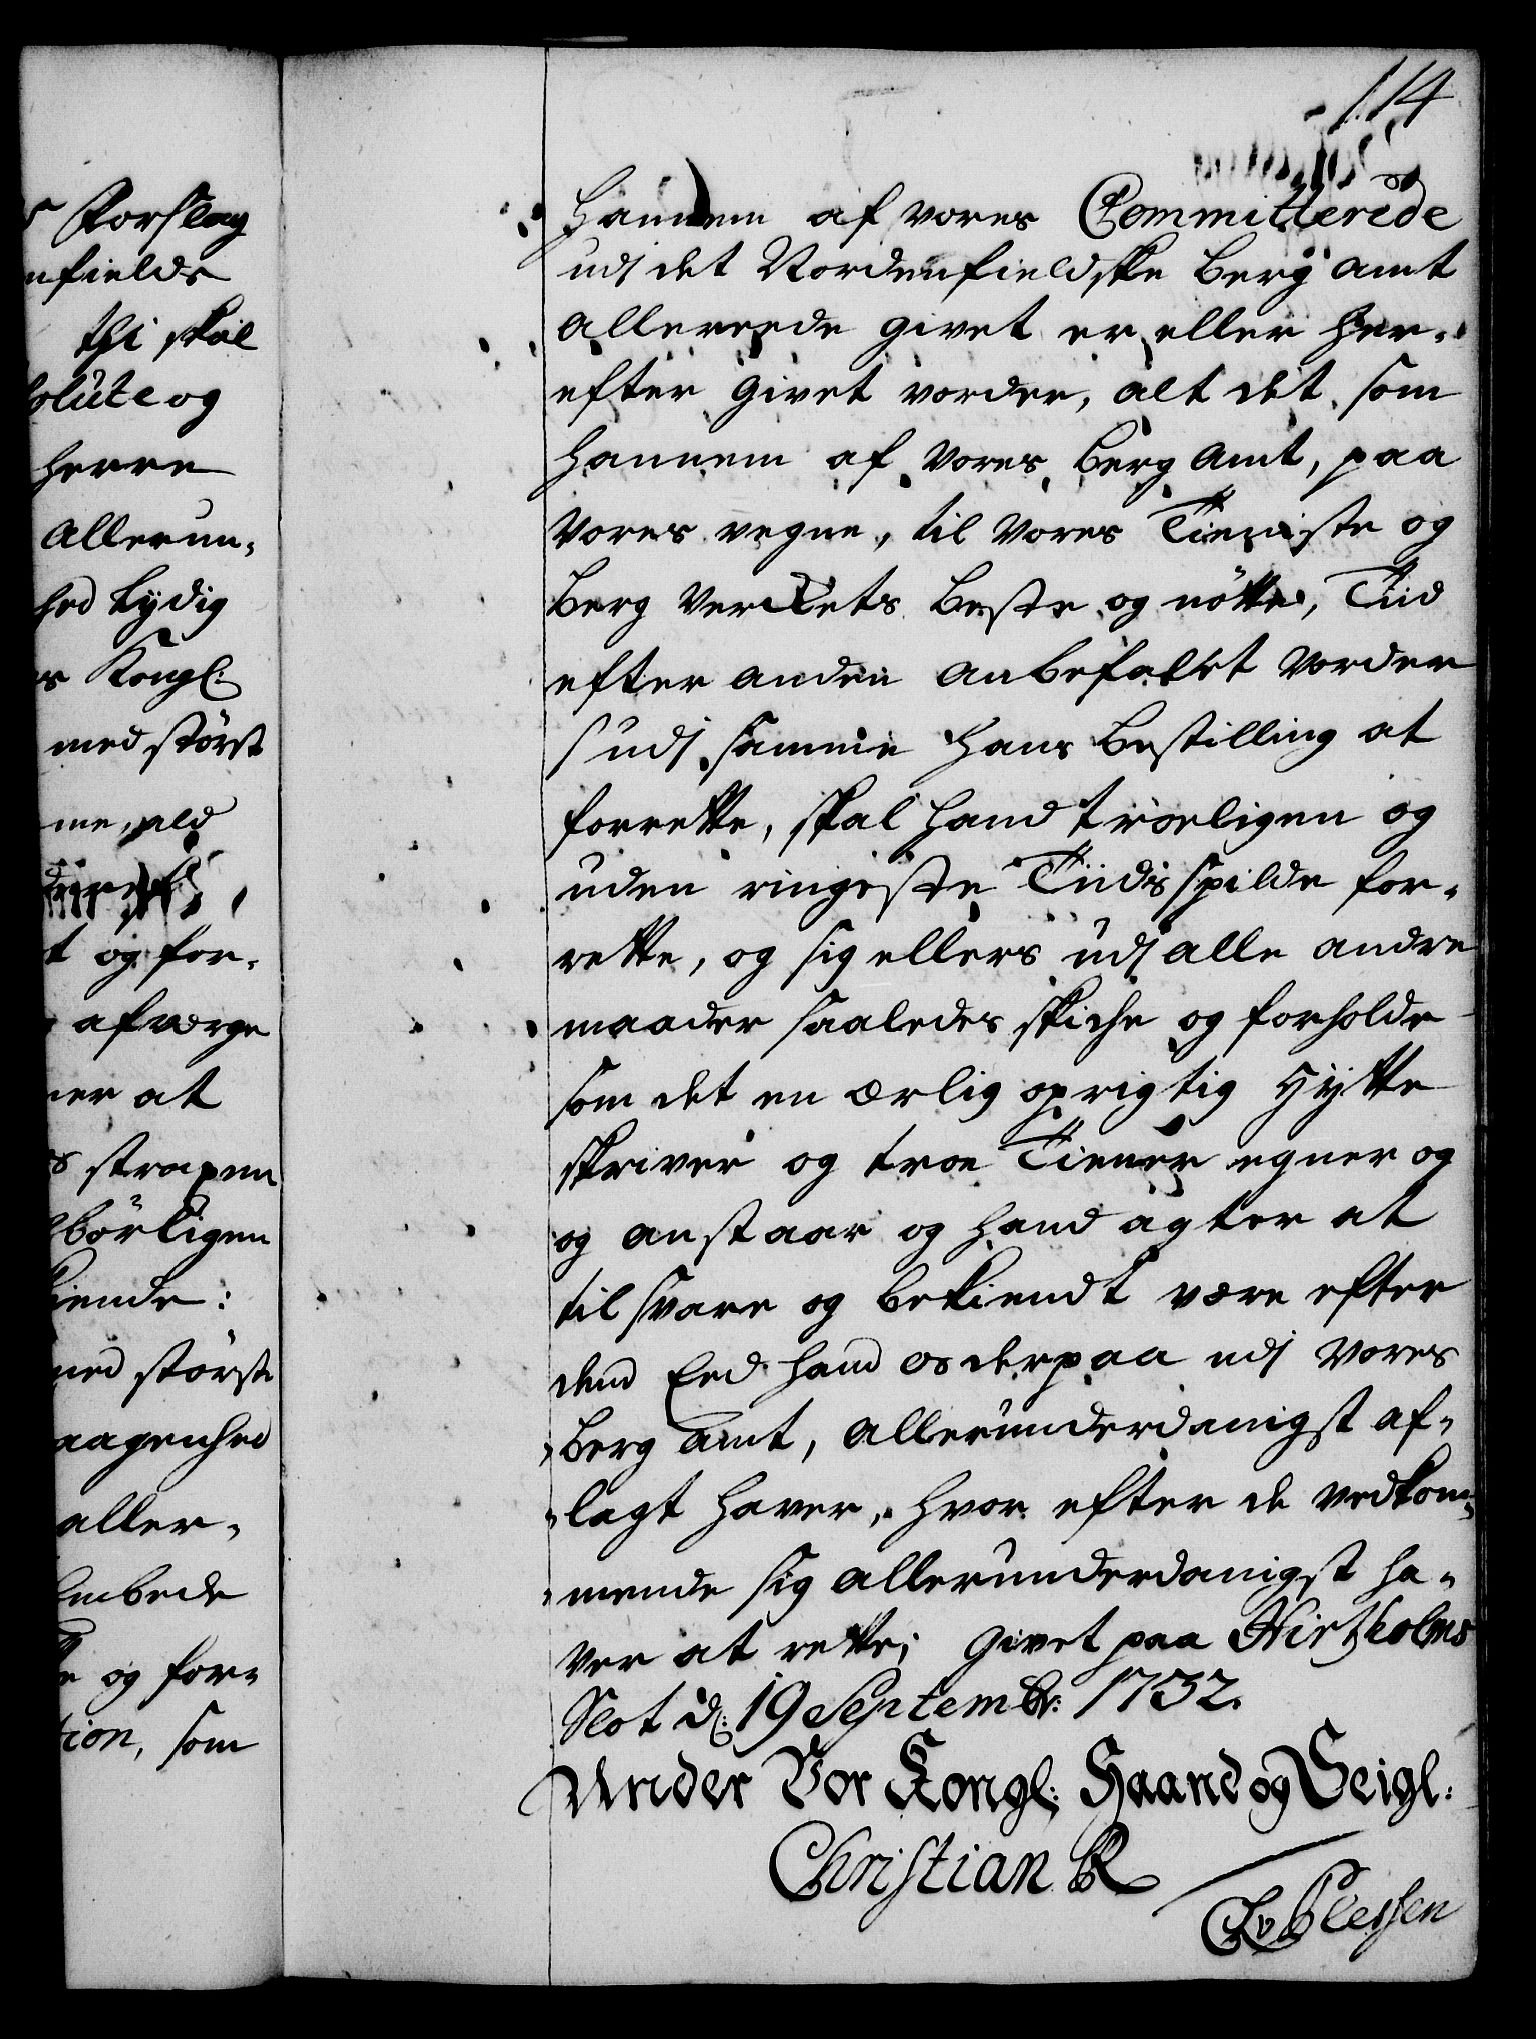 114
hannem af vores Committerede
udj det Nordenfieldske Berg Amt
allerrede givet er eller her-
efter givet vorder, alt det som
hannem af Vores Berg Amt, paa
Vores vegne, til Vores Tieniste og
Berg Verckets Beste og nötte, Tiid
efter anden anbefalet vorder
udj samme hans Bestilling at
forrette, skal hand troeligen og
uden ringeste Tiids spilde for-
rette, og sig ellers udj alle andre
maader saaledes skiche og forholde
som det en ærlig oprigtig Hytte
skriver og troe Tiener egner og
og anstaar og hand agter at
til svare og bekiendt være efter
dend Eed hand os derpaa udj Vores
Berg Amt, allerunderdanigst af-
lagt haver, hvor efter de vedkom-
mende sig allerunderdanigst ha-
ver at rette; Givet paa Hirtzholms
Slot d: 19 Septembr: 1732.
Under Vor Kongl: Haand og Seigl:
Christian R
CAvPlessen
Forslag
nfields
thi skal
solute og
Herre
Allerun-
hed lydig
Kongl:
med störst
me, ald
t og for-
afværge
ner at
stræpen
börligen
kiende:
med störste
aagenhed
aller-
Embede
e og for-
tion, som